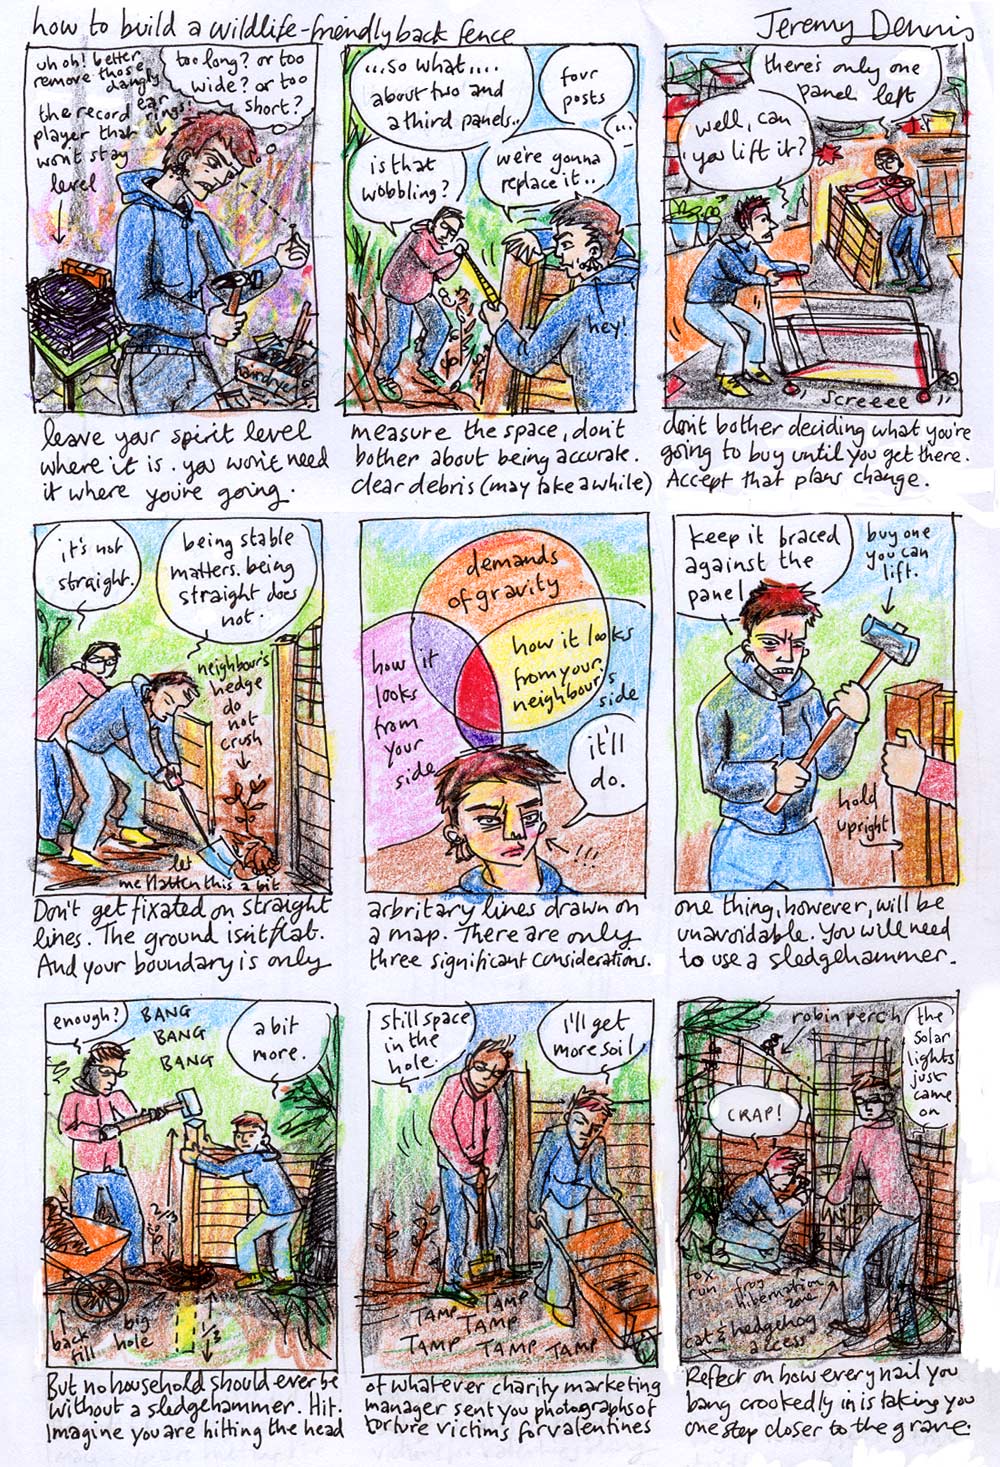 how to build a wildlife-friendly back fence
Jeremy Dennis
uh oh! better
remove those
dangly
ear
rings!
the record
player that
won't stay
level
too long? or too
wide? or too
short?
hairdryer
leave your spirit level
where it is. you won't need
it where you're going.
...so what....
about two and
a third panels..
four
posts
...
is that
wobbling?
we're gonna
replace it..
hey!
measure the space, don't
bother about being accurate.
clear debris (may take a while)
there's only one
panel left
well, can
you lift it?
screeee
don't bother deciding what you're
going to buy until you get there.
Accept that plans change.
it's not
straight.
being stable
matters. being
straight does
not.
neighbour's
hedge
do
not
crush
let
me flatten this a bit
Don't get fixated on straight
lines. The ground isn't flat.
And your boundary is only
demands
of gravity
how it
looks
from
your
side
how it looks
from your
neighbour's
side
it'll
do.
!!!
arbritary lines drawn on
a map. There are only
three significant considerations.
keep it braced
against the
panel
buy one
you can
lift.
hold
upright
one thing, however, will be
unavoidable. You will need
to use a sledgehammer.
enough?
BANG
BANG
BANG
a bit
more.
2/3
back
fill
big
hole
1/3
But no household should ever be
without a sledgehammer. Hit.
Imagine you are hitting the head
still space
in the
hole.
I'll get
more soil
TAMP TAMP
TAMP
TAMP TAMP TAMP
of whatever charity marketing
manager sent you photographs of
torture victims for valentines
robin perch
the
solar
lights
just
came
on
CRAP!
fox
run
frog
hibernation
zone
cat & hedgehog
access
Reflect on how every nail you
bang crookedly in is taking you
one step closer to the grave.